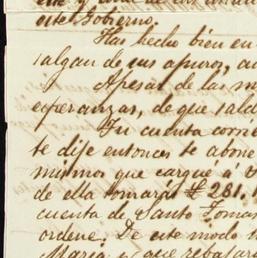 este Gobierno.
Has hecho bien en
salgan de sus apuros, au
Apesar de las m
esperanzas, de que sald
Tu cuenta corrie
te dije entonces te abone
mismos que cargué á
de ella tomarás # 281.
cuenta de Santo Tomas
ordene. De este modo
Maria y que rebajar